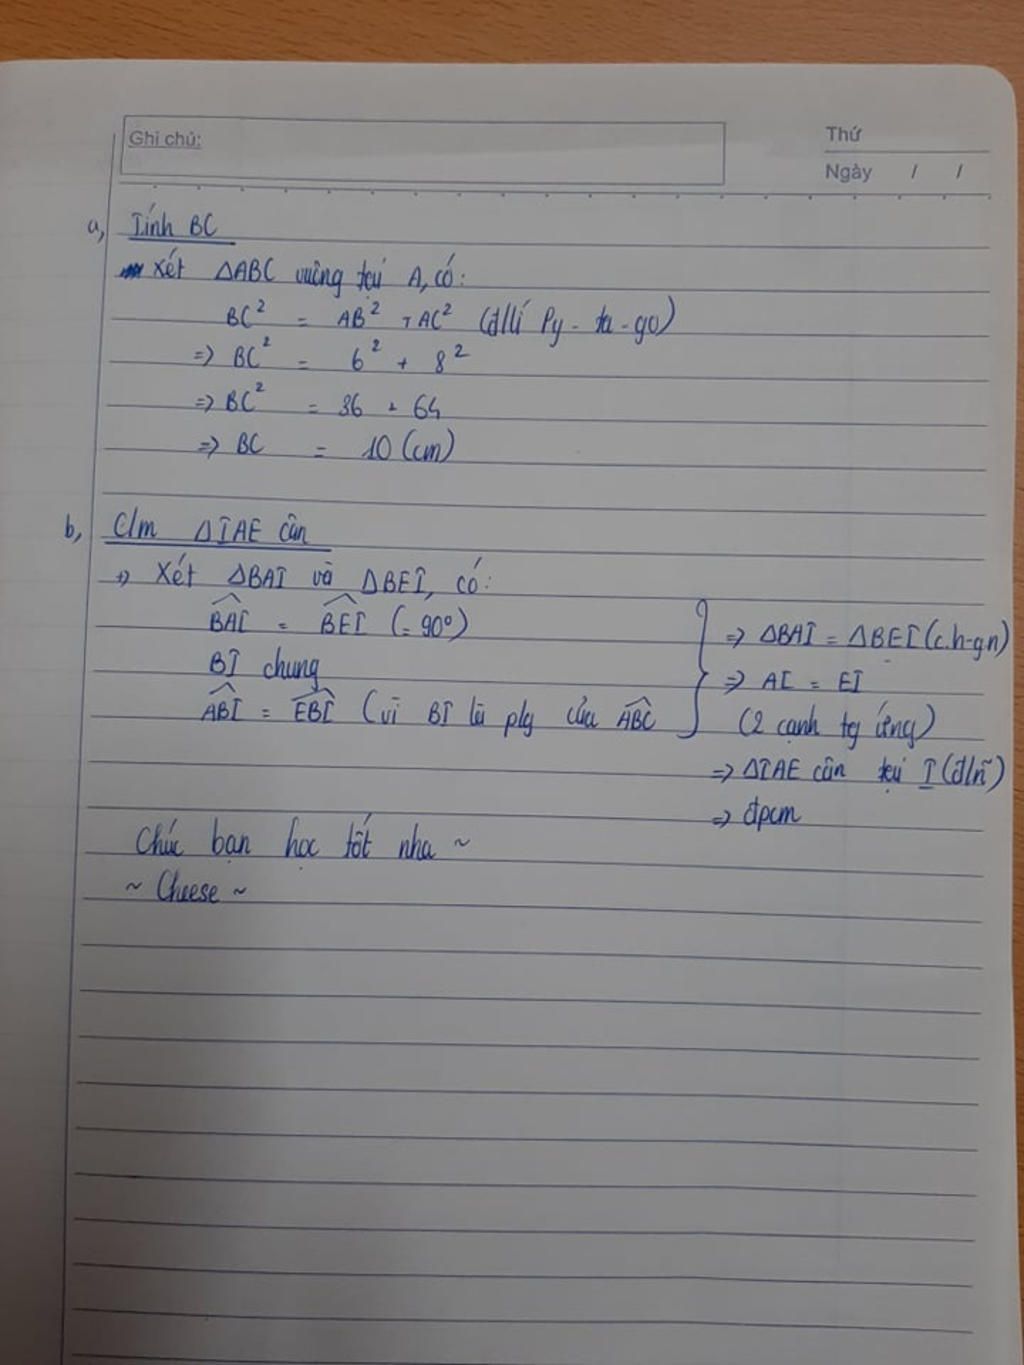 Ghi chú:
Thứ
Ngày / /
a, Tính BC
Xét ΔABC vuông tại A, có:
BC² = AB² + AC² (đ/lí Py-ta-go)
=> BC² = 6² + 8²
=> BC² = 36 + 64
=> BC = 10 (cm)
b, C/m ΔIAE cân
+) Xét ΔBAI và ΔBEI, có:
\widehat{BAI} = \widehat{BEI} (= 90°)
BI chung
\widehat{ABI} = \widehat{EBI} (vì BI là p/g của \widehat{ABC}
} => ΔBAI = ΔBEI (c.h-gn)
=> AI = EI
(2 cạnh tg ứng)
=> ΔIAE cân tại I (đ/n)
=> đpcm
Chúc bạn học tốt nha ~
~ Cheese ~